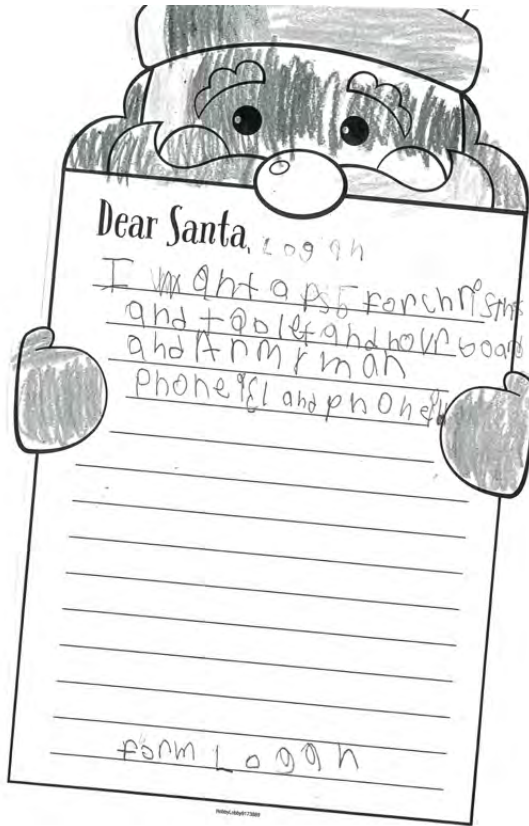 Dear Santa, Logan
I want a ps5 for christhs
and taolet and hovr board
and Armr man
phone and phone
form Logan